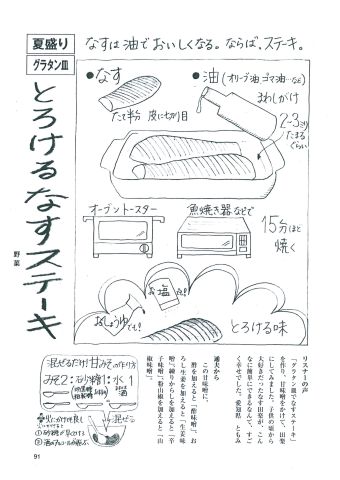 夏盛り
グラタン皿
とろけるなすステーキ
野菜
なすは油でおいしくなる。ならば、ステーキ。
●なす
たて半分 皮に切り目
●油(オリーブ油 ゴマ油…など)
まわしがけ
2~3ミリ
たまる
ぐらい
オーブントースター
魚焼き器などで
15分ほど
焼く
お塩
おしょうゆでも!
とろける味
混ぜるだけ!甘みその作り方
みそ2:砂糖1:水1
混ぜる
①砂糖が早とける
②酒のアルコールが飛ぶ
リスナーの声
「グラタン皿でなすステーキ」
を作り、甘味噌をかけて、田楽
にしてみました。子供の頃から
大好きだったなす田楽が、こん
なに簡単にできるなんて、すご
く幸せでした。愛知県 ともみ
達夫から
この甘味噌に、
酢を加えると「酢味噌」、お
ろし生姜を加えると「生姜味
噌」、練りからしを加えると「辛
子味噌」、粉山椒を加えると「山
椒味噌」。
91